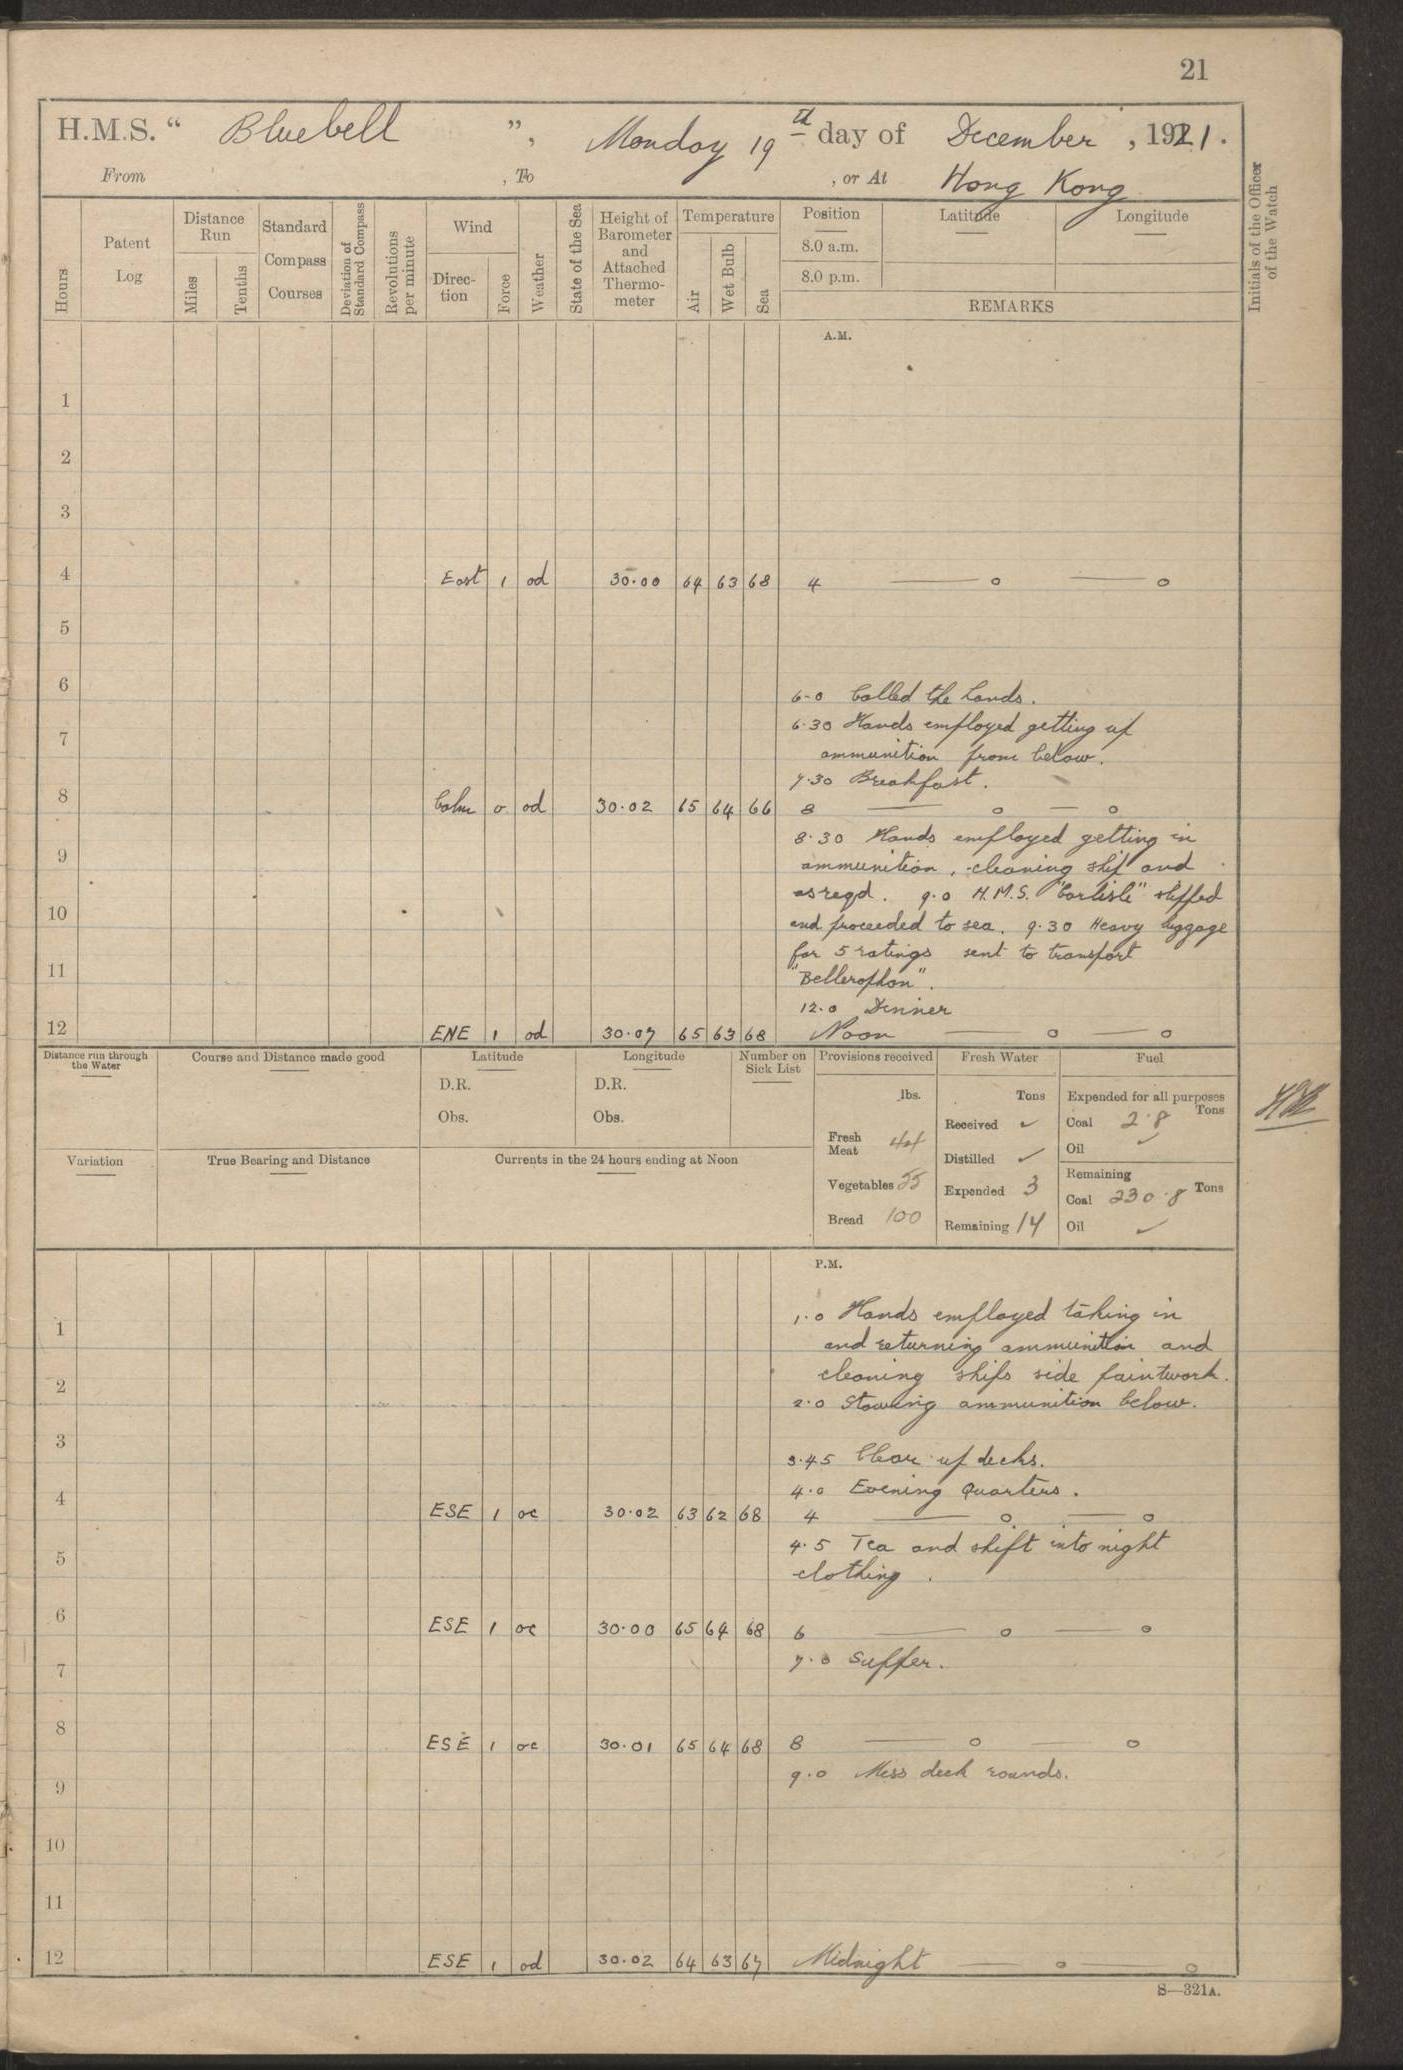 21
H.M.S. " Bluebell ", Monday 19th day of December, 1921.
From , To , or At Hong Kong
Hours
Patent Log
Distance Run
Miles
Tenths
Standard Compass Courses
Deviation of Standard Compass
Revolutions per minute
Wind
Direc-tion
Force
Weather
State of the Sea
Height of Barometer and Attached Thermo-meter
Temperature
Air
Wet Bulb
Sea
Position
Latitude
Longitude
8.0 a.m.
8.0 p.m.
REMARKS
Initials of the Officer of the Watch
A.M.
1
2
3
4 East 1 od 30.00 64 63 68 4 — o — o
5
6
6.0 Called the hands.
6.30 Hands employed getting up
7
ammunition from below.
7.30 Breakfast.
8 Calm 0 od 30.02 65 64 66 8 — o — o
8.30 Hands employed getting in
9
ammunition, cleaning ship and
as reqd. 9.0 H.M.S. "Carlisle" slipped
10
and proceeded to sea. 9.30 Heavy luggage
for 5 ratings sent to transport
11
"Bellerophon".
12.0 Dinner
12 ENE 1 od 30.07 65 63 68 Noon — o — o
Distance run through the Water
Course and Distance made good
Latitude
D.R.
Obs.
Longitude
D.R.
Obs.
Number on Sick List
Provisions received
lbs.
Fresh Meat 44
Vegetables 55
Bread 100
Fresh Water
Tons
Received ✓
Distilled ✓
Expended 3
Remaining 14
Fuel
Expended for all purposes
Tons
Coal 2.8
Oil ✓
Remaining
Tons
Coal 230.8
Oil ✓
Variation
True Bearing and Distance
Currents in the 24 hours ending at Noon
P.M.
1.0 Hands employed taking in
1
and returning ammunition and
cleaning ships side paintwork.
2
2.0 Stowing ammunition below.
3
3.45 Clear up decks.
4.0 Evening Quarters.
4 ESE 1 oc 30.02 63 62 68 4 — o — o
4.5 Tea and shift into night
5
clothing.
6 ESE 1 oc 30.00 65 64 68 6 — o — o
7.0 Supper.
7
8 ESE 1 oc 30.01 65 64 68 8 — o — o
9.0 Mess deck rounds.
9
10
11
12 ESE 1 od 30.02 64 63 67 Midnight — o — o
S—321A.